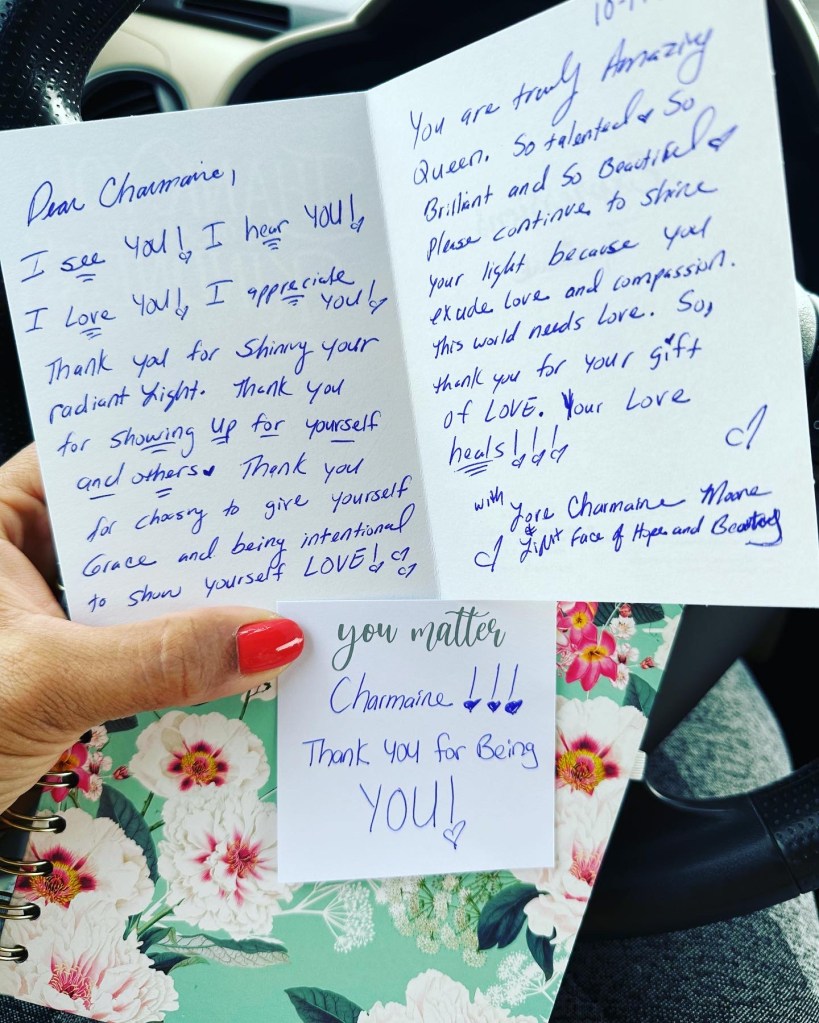 Dear Charmaine,
I see YOU! I hear YOU!
I Love YOU! I appreciate YOU!
Thank you for Shining your
radiant Light. Thank you
for showing up for yourself
and others. Thank you
for choosing to give yourself
Grace and being intentional
to show yourself LOVE!
You are truly Amazing
Queen. So talented So
Brilliant and So Beautiful
Please continue to shine
your light because you
exude Love and compassion.
This world needs Love. So,
thank you for your gift
of LOVE. Your Love
heals!!!
with Love Charmaine Moore
& Light Face of Hope and Beauty
you matter
Charmaine !!!
Thank You for Being
YOU!